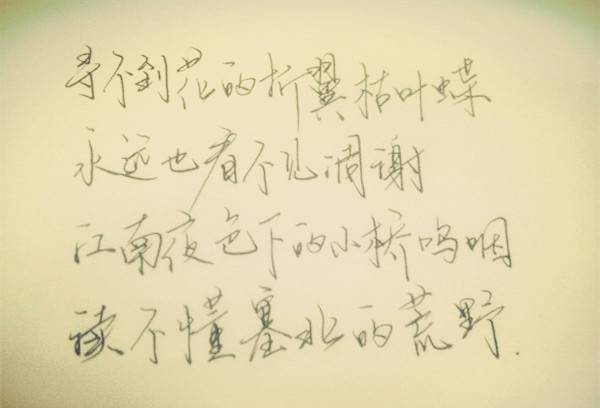 寻不到花的折翼枯叶蝶
永远也看不见凋谢
江南夜色下的小桥呜咽
读不懂塞北的荒野.